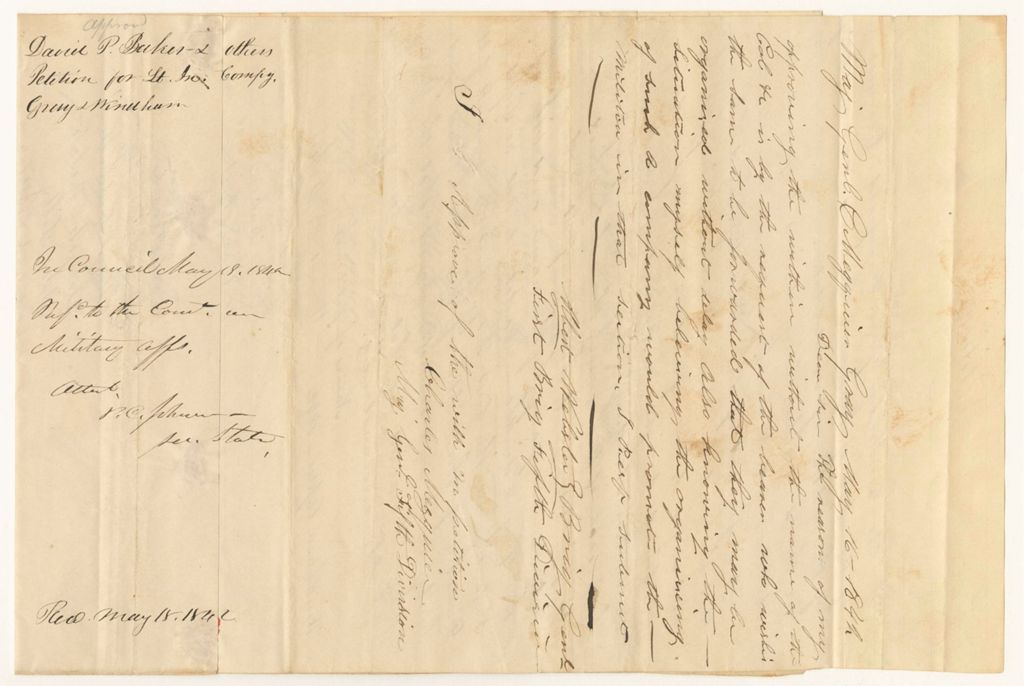 Approved
David P. Baker & others
Petition for Lt. Inf. Compy.
Gray & Windham
In Council May 18. 1842
Refd. to the Comt. on
Military affs.
Attest.
P. C. Johnson
Sec. State,
Recd. May 18. 1842
Maj. Genl. C. Megquier Gray May 16
Dear Sir The reason of my
approving the within without the name of the
Col is by the request of the bearer not wishin
the same to be forwarded that they may be
organised without delay Also knowing the
situation myself beleiving the organiseing
of such a company would promote the
Militia in that section I
Webster Brig. Genl.
First Brig Fifth Division
I Approve of the with in petition
Charles Megquier
Maj. Genl. Fifth Division